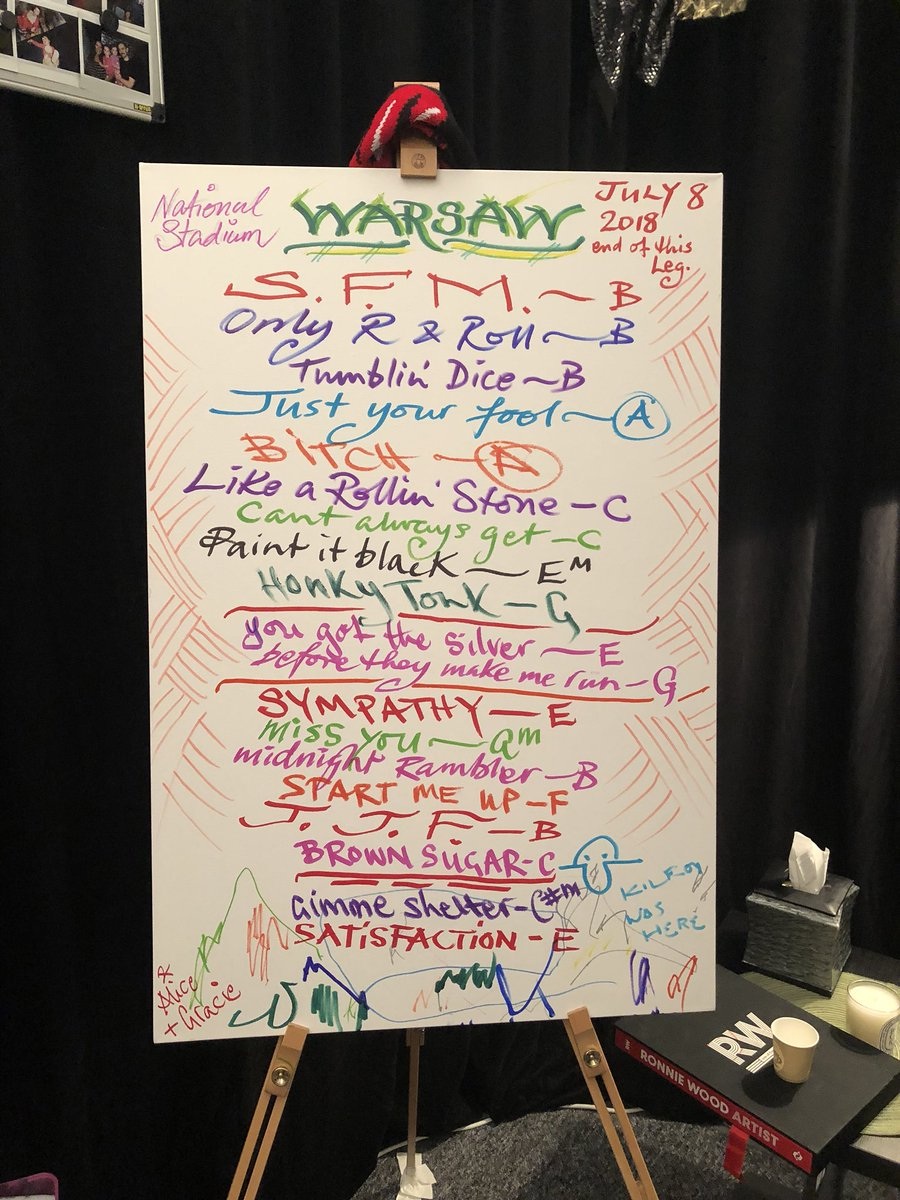 National
Stadium
WARSAW
JULY 8
2018
end of this
Leg.
S.F.M. ~ B
Only R & Roll ~ B
Tumblin' Dice ~ B
Just your fool ~ A
BiTCH ~ A
Like a Rollin' Stone - C
Cant always get - C
Paint it black ~ Em
Honky Tonk - G
you got the silver ~ E
before they make me run - G
SYMPATHY - E
miss you ~ am
midnight Rambler - B
START ME UP - F
J.J.F - B
BROWN SUGAR - C
Gimme shelter - C#m
SATiSFACTiON - E
KILROY
WAS
HERE
& Alice
+ Gracie
RW
RONNIE WOOD ARTIST